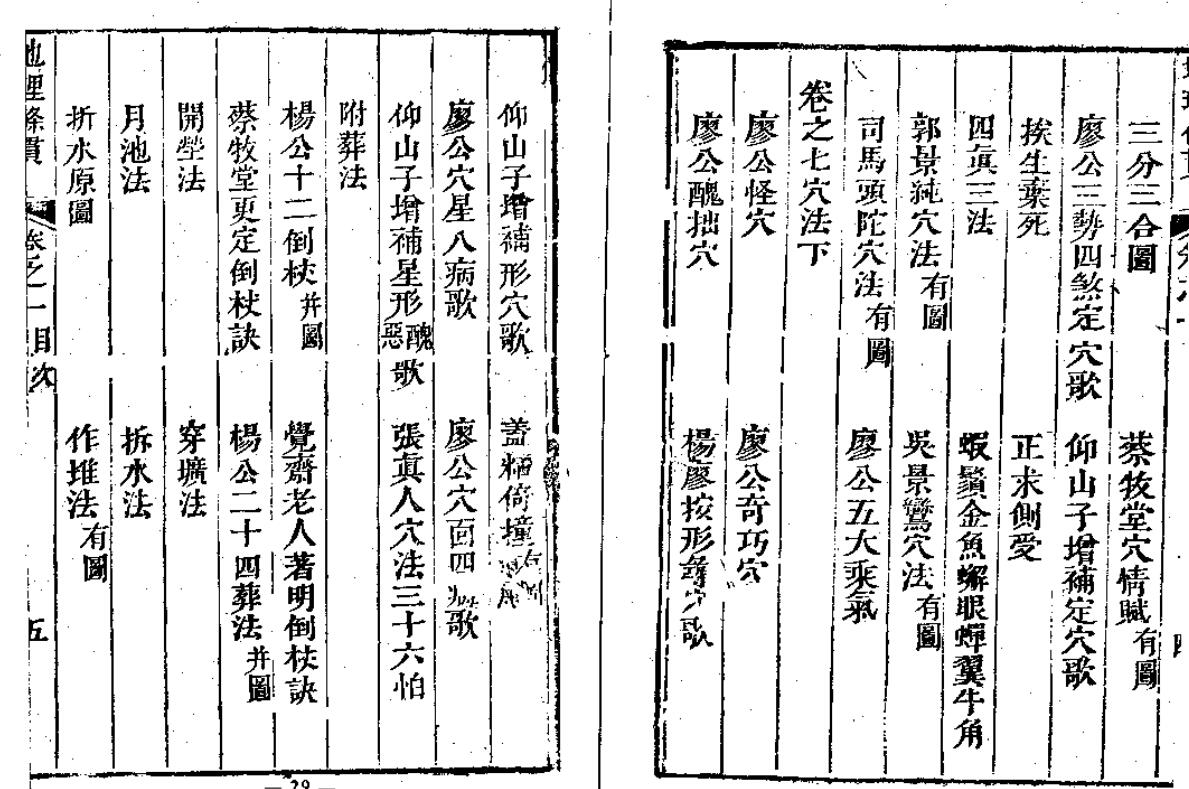 三分三合圖　蔡牧堂穴情賦有圖
廖公三勢四煞定穴歌　仰山子增補定穴歌
挨生棄死　正求側受
四眞三法　蝦鬚金魚蠏眼蟬翼牛角
郭景純穴法有圖　吳景鸞穴法有圖
司馬頭陀穴法有圖　廖公五大乘氣
卷之七穴法下
廖公怪穴　廖公奇巧穴
廖公醜拙穴　楊廖按形尋穴歌
仰山子增補形穴歌　蓋粘倚撞
廖公穴星八病歌　廖公穴面四歌
仰山子增補星形醜惡歌　張眞人穴法三十六怕
附葬法
楊公十二倒杖并圖　覺齋老人著明倒杖訣
蔡牧堂更定倒杖訣　楊公二十四葬法并圖
開塋法　穿壙法
月池法　拆水法
折水原圖　作堆法有圖
地理條貫　卷之一目次　五
29